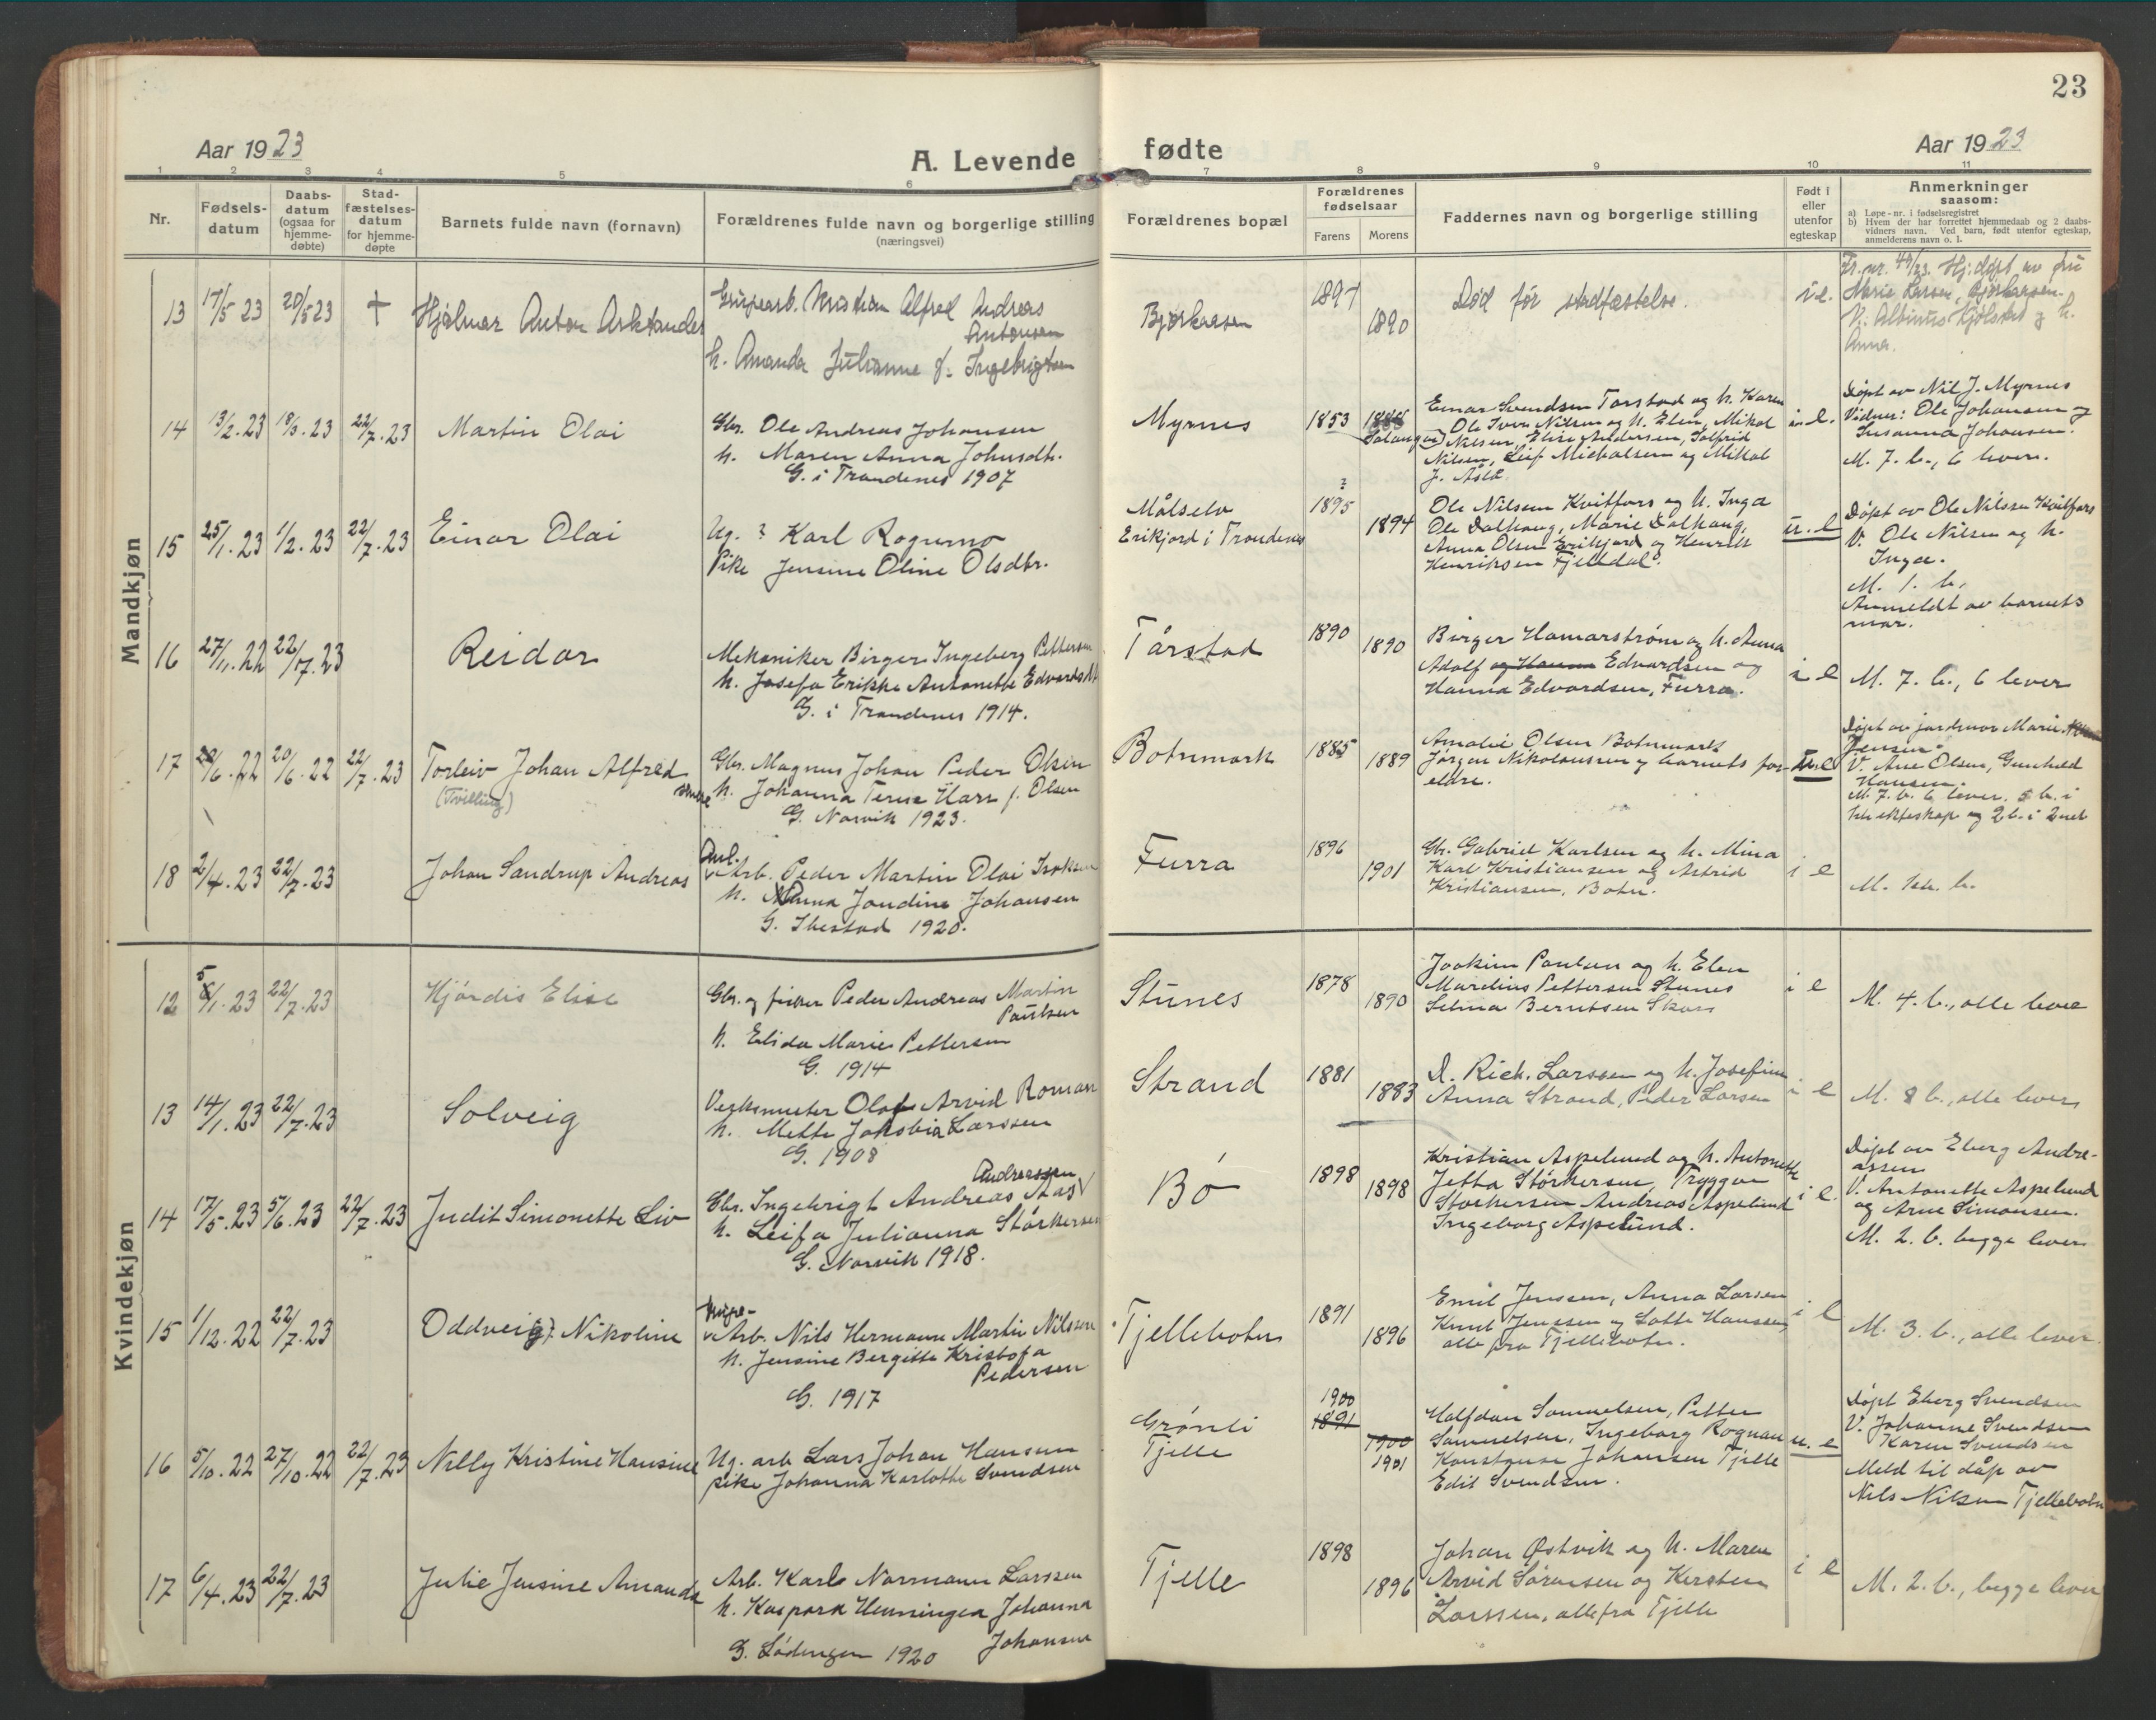 23
Aar 1923
A. Levende fødte
Aar 1923
1 2 3 4 5 6 7 8 9 10 11
Nr.
Fødsels-
datum
Daabs-
datum
(ogsaa for
hjemme-
døbte)
Stad-
fæstelses-
datum
for hjemme-
døpte
Barnets fulde navn (fornavn)
Forældrenes fulde navn og borgerlige stilling
(næringsvei)
Forældrenes bopæl
Forældrenes
fødselsaar
Farens Morens
Faddernes navn og borgerlige stilling
Født i
eller
utenfor
egteskap
Anmerkninger
saasom:
a) Løpe-nr. i fødselsregistret
b) Hvem der har forrettet hjemmedaab og 2 daabs-
vidners navn. Ved barn, født utenfor egteskap,
anmelderens navn o. l.
Mandkjøn
13 17/5 23 20/5 23 † Hjalmar Anton Arktander
Grupearb. Kristian Alfred Andreas
Antonsen
h. Amanda Julianne f. Ingebrigtsen
Bjørkaasen
1897
1890
Død før stadfæstelse.
i e.
Fr. nr. 49/23. Hj. døpt av fru
Marie Larsen, Bjørkaasen.
V. Albinus Kjølstad og h.
Anna.
14 13/2.23 18/3.23 22/7.23 Martin Olai
Gbr. Ole Andreas Johansen
h. Maren Anna Johnsdtr.
G. i Trondenes 1907
Myrnes
1853
Salangen
Einar Svendsen Tarstad og h. Karen
Ole Iver Nilsen og h. Elen, Mikal
Nilsen, Elise Andersen, Solfrid
Nilsen, Leif Mickalsen og Mikal
J. Aslå
i e.
Døpt av Nil J. Myrnes
Vidner: Ole Johansen og
Susanna Johansen.
M. 7. b., 6 lever.
15 25/1.23 1/2.23 22/7.23 Einar Olai
Ug. ? Karl Rognmo
Pike Jensine Oline Olsdtr.
Målselv
Erikjord i Trondenes
?
1895
1894
Ole Nilsen Kvitfors og h. Inga
Ole Dalhaug, Marie Dalhaug,
Anna Olsen Erikjord og Henrik
Henriksen Fjelldal.
u. e
Døpt av Ole Nilsen Kvitfors
V. Ole Nilsen og h.
Inga.
M. 1. b.
Anmeldt av barnets
mor.
16 27/11.22 22/7.23 Reidar
Mekaniker Birger Ingeberg Pettersen
h. Josefa Erikka Antonette Edvardsdt
G. i Trondenes 1914.
Tårstad
1890
1890
Birger Hamarstrøm og h. Anna
Adolf og Hanna Edvardsen og
Hanna Edvardsen, Furra.
i e
M. 7. b., 6 lever
17 20/6.22 20/6.22 22/7.23 Torleiv Johan Alfred
(Tvilling)
Gbr. Magnus Johan Peder Olsen
h. Johanna Terese Hans f. Olsen
G. Narvik 1923.
Botnmark
1885
1889
Amalie Olsen Botnmark
Jørgen Nikolaussen og barnets for-
eldre.
u. e
Døpt av jordmor Marie
Jensen.
V. Ane Olsen, Gunhild
Hansen.
M. 7. b. 6 lever. 5 b. i
1ste ekteskap og 2 b. i 2net
18 2/4.23 22/7.23 Johan Sandrup Andreas
Anl.
Arb. Peder Martin Olai Isaksen
h. Anna Jondine Johansen
G. Ibestad 1920.
Furra
1896
1901
Gb. Gabriel Karlsen og h. Mina
Karl Kristiansen og Astrid
Kristiansen, Botn.
i e
M. 1ste b.
Kvindekjøn
12 5/1.23 22/7.23 Hjørdis Elise
Gbr. og fisker Peder Andreas Martin
Paulsen
h. Elida Marie Pettersen
G. 1914
Stunes
1878
1890
Joakim Paulsen og h. Elen
Mardius Pettersen Stunes
Selma Berntsen Skars
i e
M. 4. b., alle leve
13 14/1.23 22/7.23 Solveig
Verksmester Olaf Arvid Roman
h. Mette Jakobia Larssen
G. 1908
Strand
1881
1883
D. Rich. Larssen og h. Josefine
Anna Strand, Peder Larsen
i e
M. 8 b., alle lever
14 17/5.23 5/6.23 22/7.23 Judit Simonette Liv
Andreassen
Gbr. Ingebrigt Andreas Aas
h. Leifa Julianna Størkersen
G. Narvik 1918.
Bø
1898
1898
Kristian Aspelund og h. Antonette
Jetta Størkersen, Tryggve
Størkersen Andreas Aspelund
Ingeborg Aspelund.
i e.
Døpt av Eberg Andre-
assen
V. Antonette Aspelund
og Arne Simonsen.
M. 2. b. begge lever
15 1/12.22 22/7.23 Oddveig Nikoline
Grupe-
Arb. Nils Hermann Martin Nilssen
h. Jensine Bergitte Kristofa
Pedersen
G. 1917
Tjellebotn
1891
1896
Emil Jenssen, Anna Larsen
Knut Jenssen og Lotte Hanssen
alle fra Tjellebotn.
i e
M. 3. b., alle lever.
16 5/10.22 27/10.22 22/7.23 Nilly Kristine Hansine
Ug. arb Lars Johan Hansen
pike Johanna Karlotte Svendsen
Grønli
Tjelle
1900
1891
1900
1901
Halfdan Samuelsen, Petter
Samuelsen, Ingeborg Rognan
Konstanse Johansen Tjelle
Edit Svendsen.
u. e
Døpt Eberg Svendsen
V. Johanne Svendsen
Karen Svendsen
Meld til dåp av
Nils Nilsen Tjellebotn
17 6/4.23 22/7.23 Julie Jensine Amanda
Arb. Karl Normann Larssen
h. Kaspara Henningea Johanna
Johansen
G. Lødingen 1920
Tjelle
1898
1896
Johan Østvik og h. Maren
Arvid Sørensen og Kersten
Larssen, alle fra Tjelle
i e
M. 2. b., begge lever